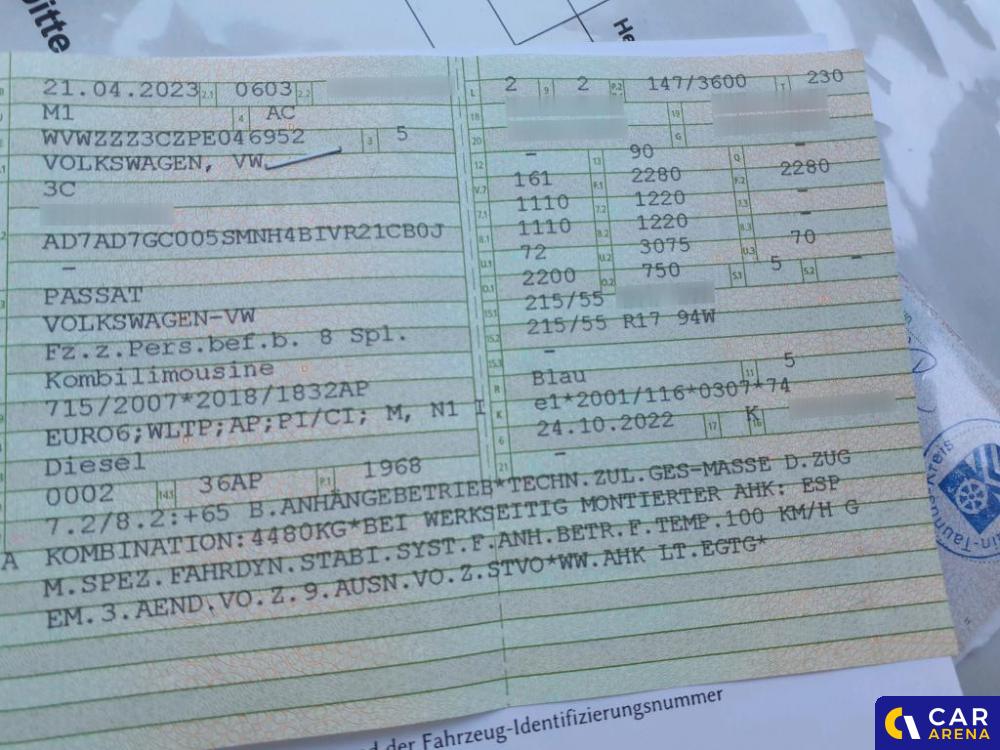 bitte
He
21.04.2023 2.1 0603 2.2
M1 4 AC
WVWZZZ3CZPE046952 3 5
VOLKSWAGEN, VW
3C
AD7AD7GC005SMNH4BIVR21CB0J
–
PASSAT
VOLKSWAGEN-VW
Fz.z.Pers.bef.b. 8 Spl.
Kombilimousine
715/2007*2018/1832AP
EURO6;WLTP;AP;PI/CI; M, N1 I
Diesel
0002 14.1 36AP P.1 1968
L 2 9 2 P.2 147/3600 T 230
18 19
20 G
12 – 13 90 Q –
V.7 161 F.1 2280 F.2 2280
7.1 1110 7.2 1220 7.3 –
8.1 1110 8.2 1220 8.3 –
U.1 72 U.2 3075 U.3 70
O.1 2200 O.2 750 S.1 5 S.2 –
15.1 215/55
15.2 215/55 R17 94W
15.3 –
R Blau 11 5
K e1*2001/116*0307*74
6 24.10.2022 17 K 16
21 –
7.2/8.2:+65 B.ANHÄNGEBETRIEB*TECHN.ZUL.GES-MASSE D.ZUG
A KOMBINATION:4480KG*BEI WERKSEITIG MONTIERTER AHK: ESP
M.SPEZ.FAHRDYN.STABI.SYST.F.ANH.BETR.F.TEMP.100 KM/H G
EM.3.AEND.VO.Z.9.AUSN.VO.Z.STVO*WW.AHK LT.EGTG*
d der Fahrzeug-Identifizierungsnummer
in-Taunus-Kreis
CAR
ARENA